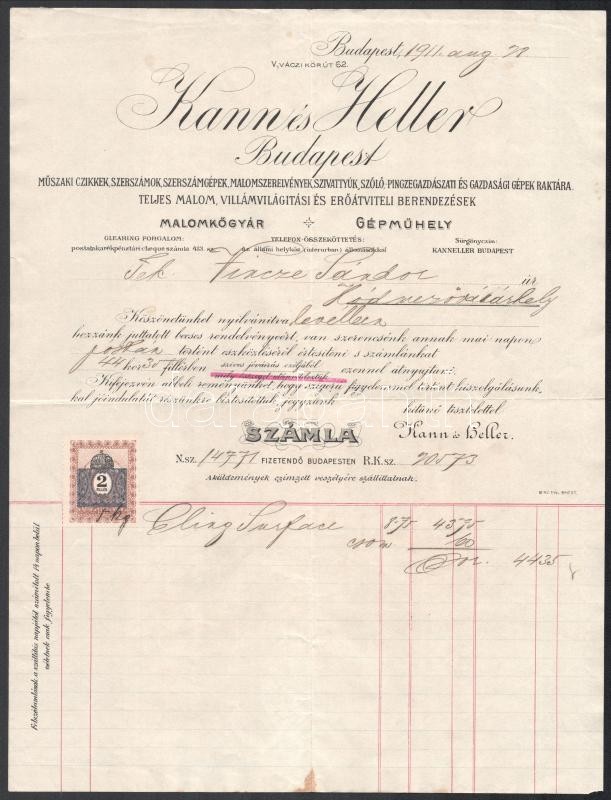 Budapest, 1911. aug
V. VÁCZI KÖRÚT 62.
Kann és Heller
Budapest
MŰSZAKI CZIKKEK, SZERSZÁMOK, SZERSZÁMGÉPEK, MALOMSZERELVÉNYEK, SZIVATTYÚK, SZŐLŐ- PINGZEGAZDÁSZATI ÉS GAZDASÁGI GÉPEK RAKTÁRA.
TELJES MALOM, VILLÁMVILÁGITÁSI ÉS ERŐÁTVITELI BERENDEZÉSEK
MALOMKŐGYÁR GÉPMŰHELY
CLEARING FORGALOM: TELEFON-ÖSSZEKÖTTETÉS: Sürgönyczim:
postatakarékpénztári cheque számla 413. sz. az állami helyközi (interurban) állomásokkal KANNELLER BUDAPEST
Tek. Vincze Sándor úr
Hódmezővásárhely
Köszönetünket nyilvánitva levelben
hozzánk juttatott becses rendelvényeért, van szerencsénk annak mai napon
postán történt eszközléséről értesiteni s számlánkat
44 kor. 30 fillérben szives jóváirás czéljából ezennel átnyujtani.
mely összeget utánvételeztük
Kifejezvén abbeli reményünket, hogy szigorú figyelemmel történt kiszolgálásunk,
kal jóindulatát részünkre biztositottuk, jegyzünk kitünő tisztelettel
Kann és Heller.
SZÁMLA
N.sz. 14771 FIZETENDŐ BUDAPESTEN R.K.sz. 20573
A küldemények czimzett veszélyére szállittatnak.
2
5 kg Cling Surface 8.75 43.75
csom 60
Kor. 4435
Felszólamlások a szállitás napjától számitott 14 napon belül
vétetnek csak figyelembe